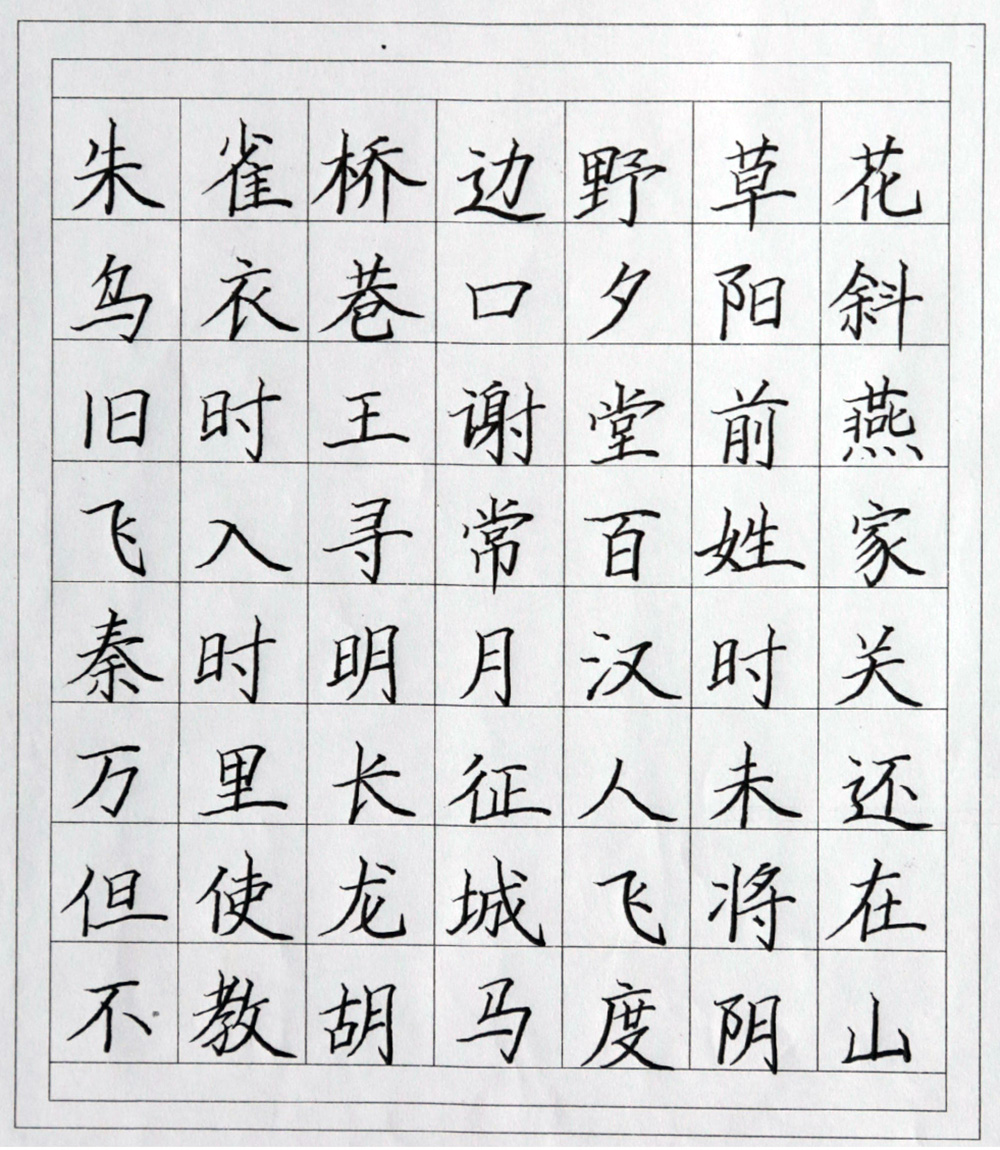 朱雀桥边野草花
乌衣巷口夕阳斜
旧时王谢堂前燕
飞入寻常百姓家
秦时明月汉时关
万里长征人未还
但使龙城飞将在
不教胡马度阴山